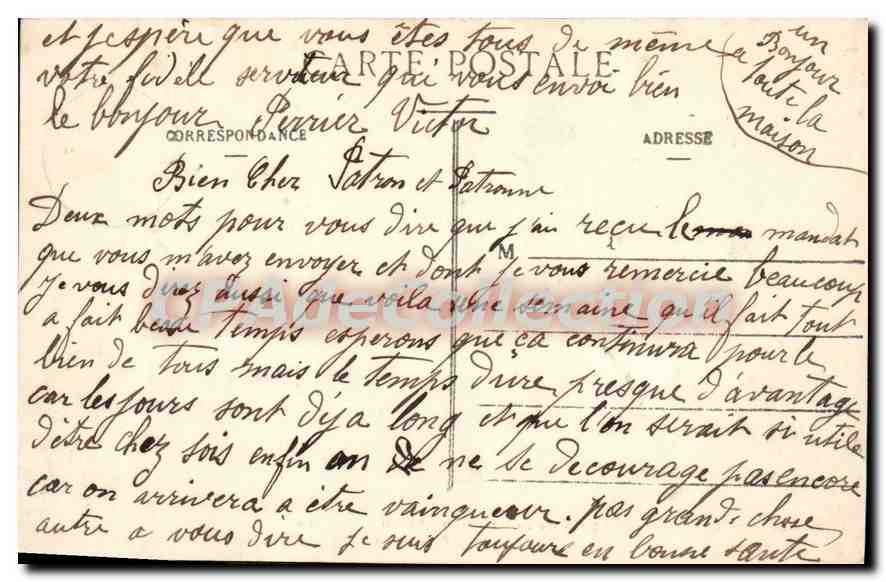 Bien Cher Patron et Patronne
Deux mots pour vous dire que j'ai reçu le mandat
que vous m'avez envoyer et dont je vous remercie beaucoup
Je vous direz aussi que voila une semaine qu'il fait tout
a fait beau temps esperons que ça continura pour le
bien de tous mais le temps dure presque d'avantage
car les jours sont déja long et que l'on serait si utile
d'être chez sois enfin on ne se decourage pas encore
car on arrivera a être vainqueur. pas grand-chose
autre a vous dire je suis toujours en bonne santé
et j'espère que vous êtes tous de même
votre fidèle serviteur qui vous envoi bien
le bonjour Perrier Victor
un
Bonjour
a toute la
maison
CARTE POSTALE
CORRESPONDANCE
ADRESSE
M
CPAdeCollection